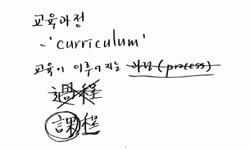 교육과정
-'curriculum'
교육이 이루어지는 과정(process)
過程
課程